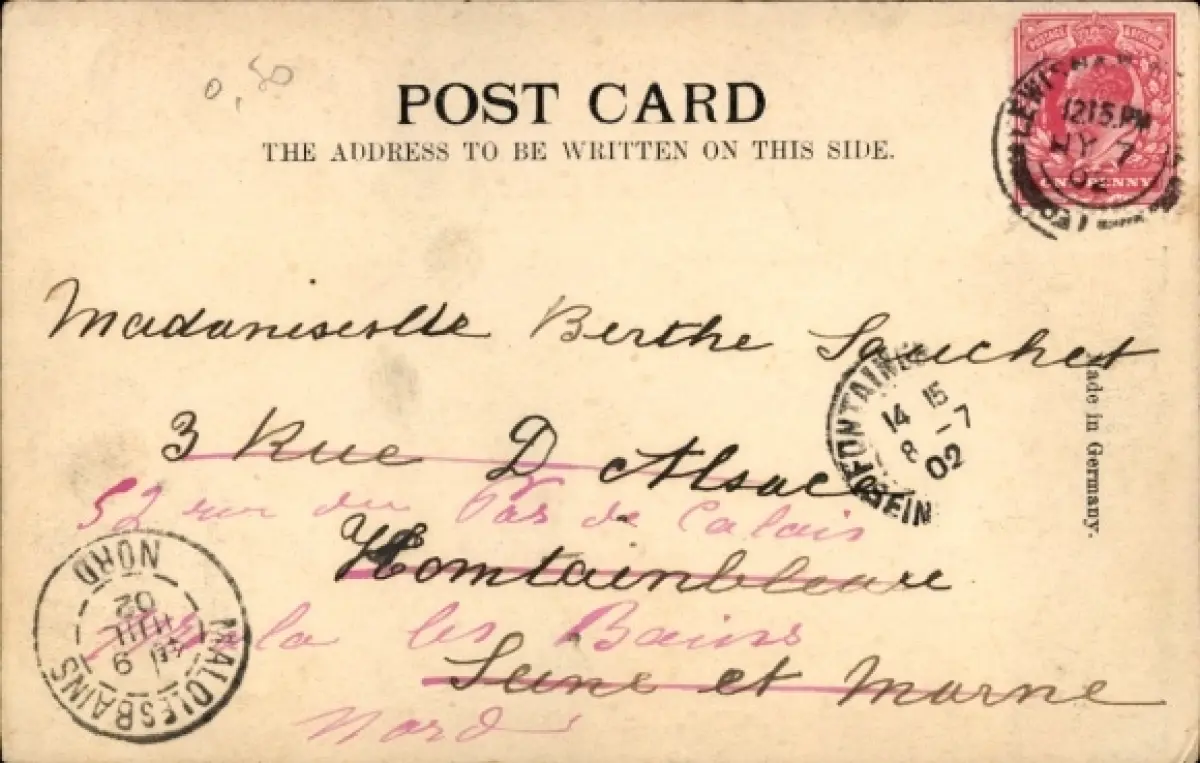 0,50
POST CARD
THE ADDRESS TO BE WRITTEN ON THIS SIDE.
POSTAGE REVENUE
ONE PENNY
LEWISHAM
12 15.PM
JY 7
02
Mademoiselle Berthe Sauchet
3 Rue D Alsace
52 rue du Pas de Calais
Fontainebleau
Malo les Bains
Seine et Marne
Nord
FONTAINEB
14 15
8 -7
02
SEIN
MALO LES BAINS
NORD
9
JUIL
02
Made in Germany.